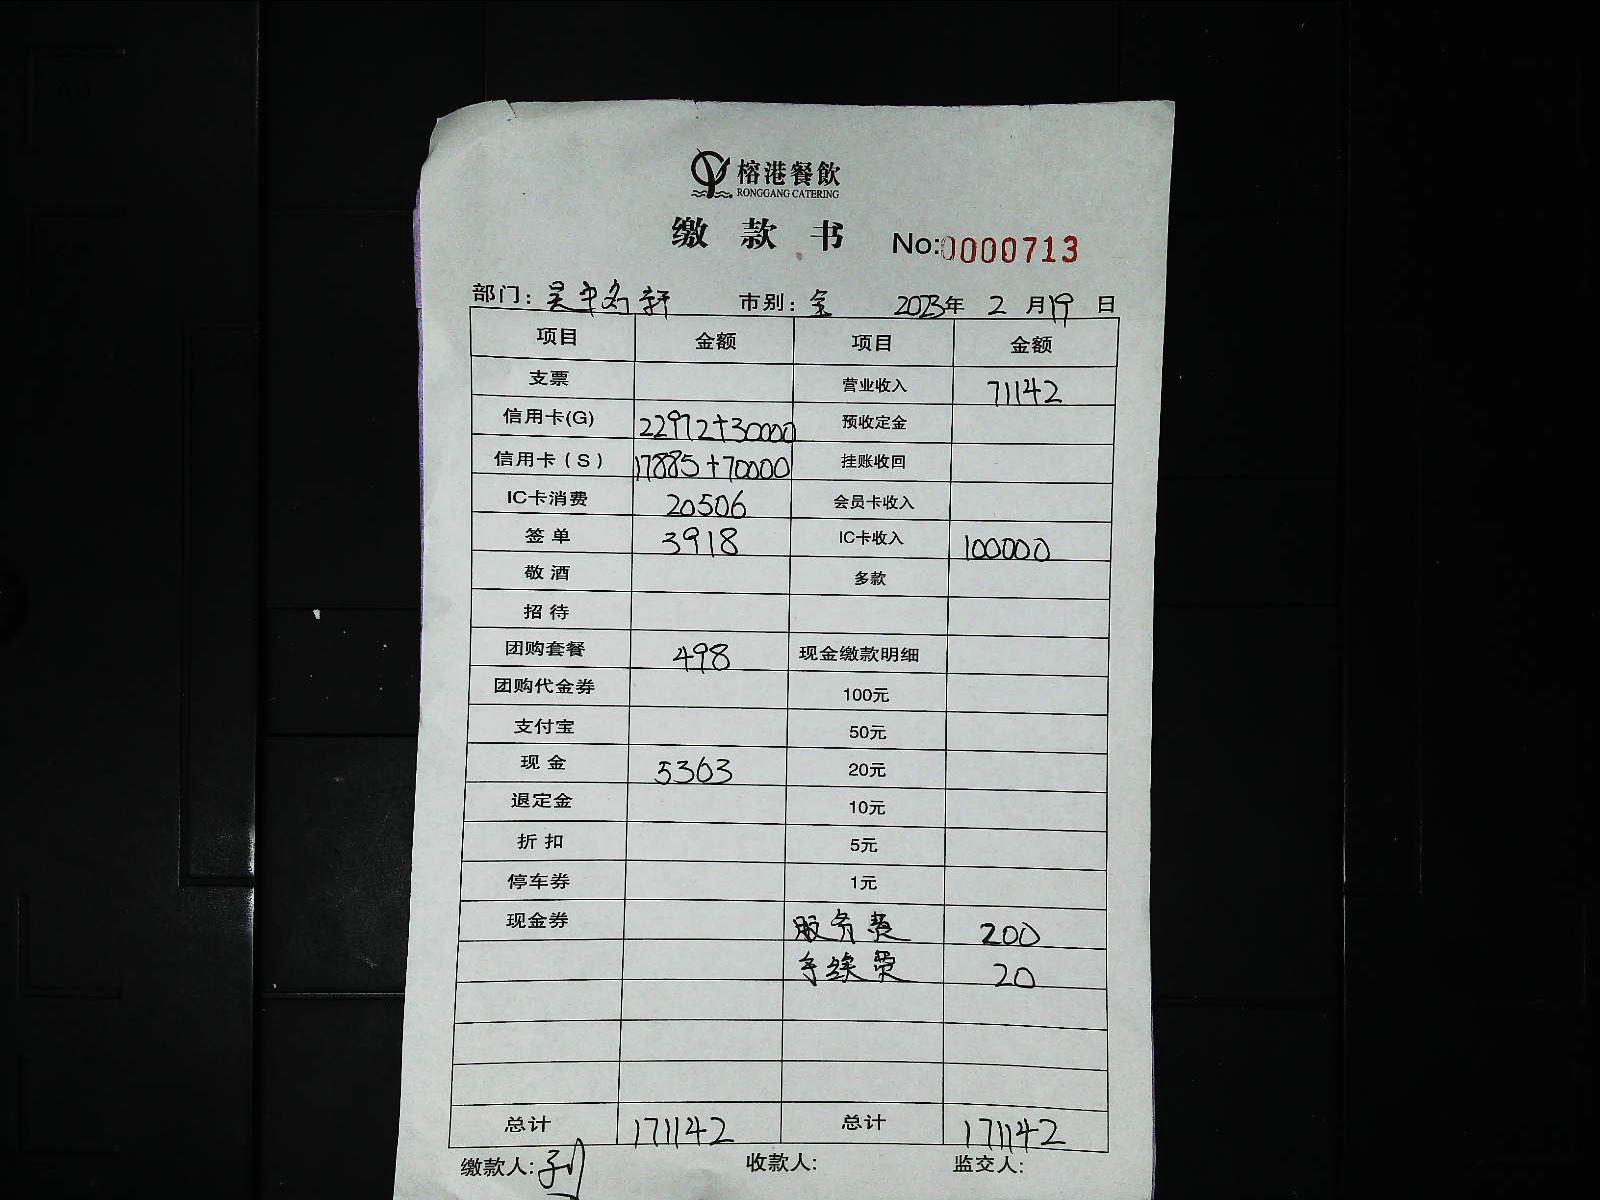 榕港餐飲
RONGGANG CATERING
缴款书 No:0000713
部门: 市别: 全 2023年 2月19日
项目 金额 项目 金额
支票 营业收入 71142
信用卡(G) 22972+30000 预收定金
信用卡(S) 17885+70000 挂账收回
IC卡消费 20506 会员卡收入
签单 3918 IC卡收入 100000
敬酒 多款
招待
团购套餐 498 现金缴款明细
团购代金券 100元
支付宝 50元
现金 5363 20元
退定金 10元
折扣 5元
停车券 1元
现金券 服务费 200
手续费 20
总计 171142 总计 171142
缴款人: 收款人: 监交人: